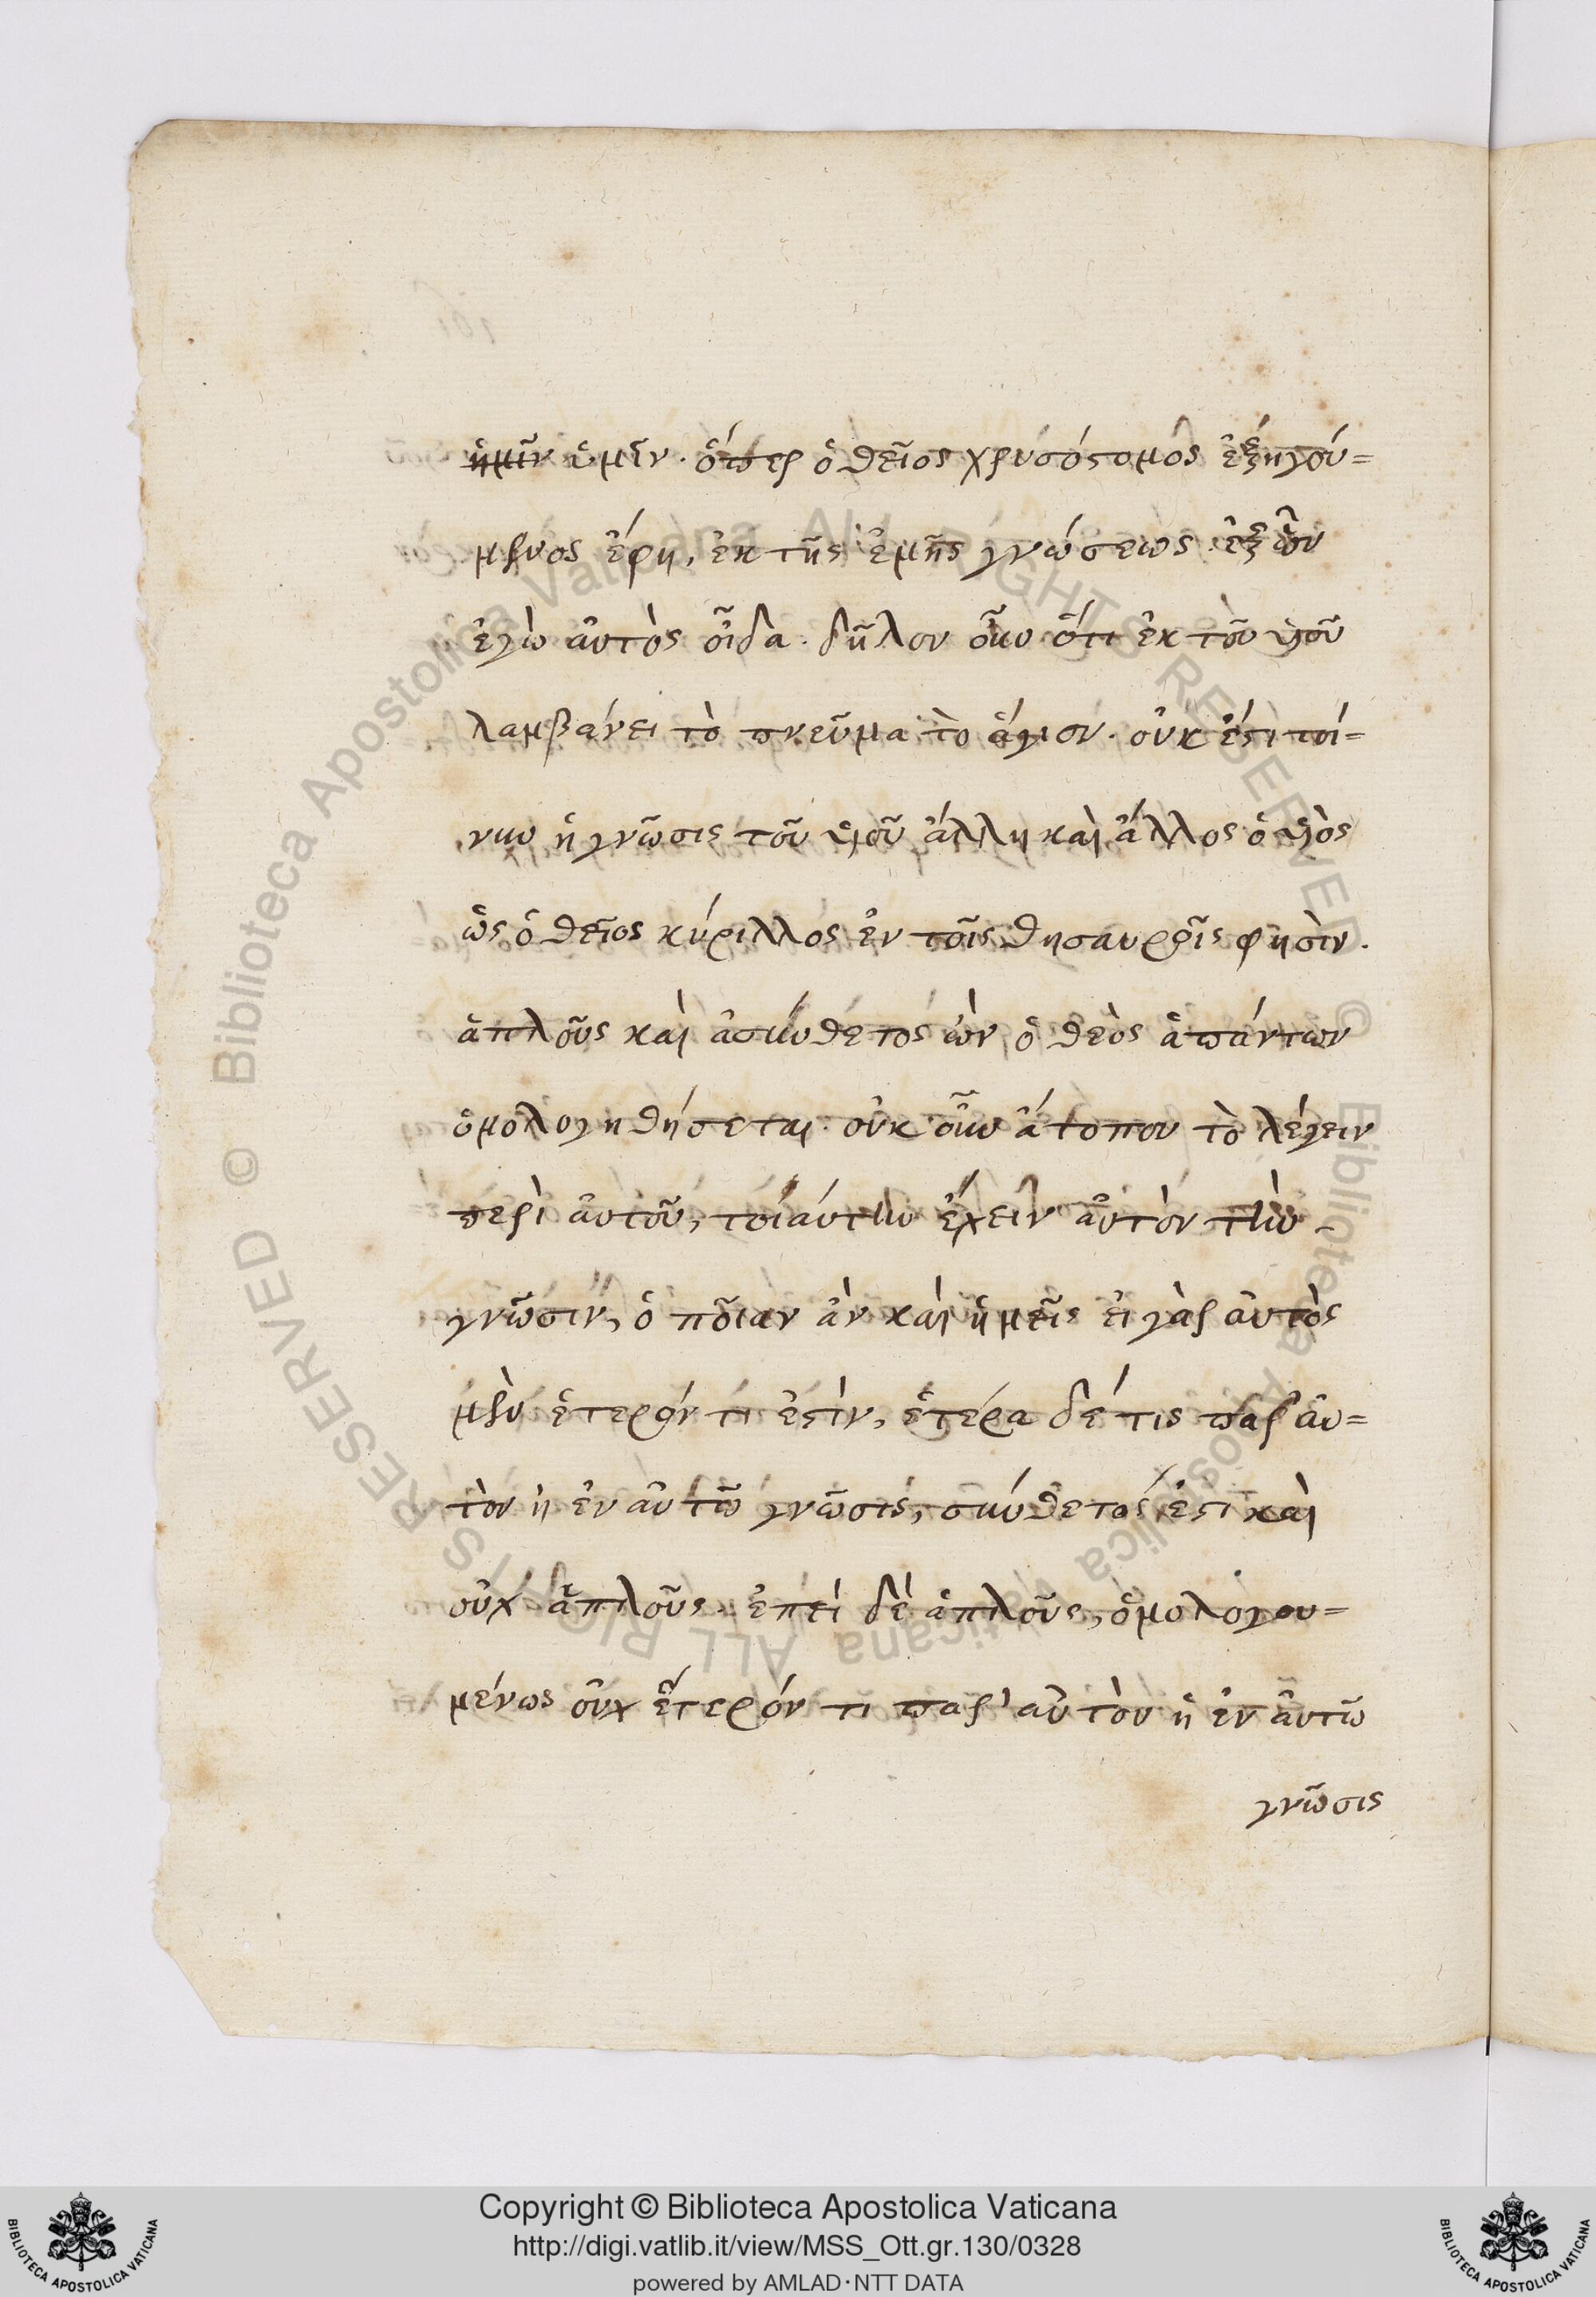 ἡμῖν ὑμῖν. ὅπερ ὁ θεῖος χρυσόστομος ἐξηγού=
μενος ἔφη, ἐκ τῆς ἐμῆς γνώσεως. ἐξ ὧν
ἐγὼ αὐτὸς οἶδα. δῆλον οὖν ὅτι ἐκ τοῦ υἱοῦ
λαμβάνει τὸ πνεῦμα τὸ ἅγιον. οὐκ ἔστι τοί=
νυν ἡ γνῶσις τοῦ υἱοῦ ἄλλη καὶ ἄλλος ὁ υἱὸς
ὡς ὁ θεῖος κύριλλος ἐν τοῖς θησαυροῖς φησὶν.
ἁπλοῦς καὶ ἀσύνθετος ὢν ὁ θεὸς ἁπάντων
ὁμολογηθήσεται. οὐκ οὖν ἄτοπον τὸ λέγειν
περὶ αὐτοῦ, τοιαύτην ἔχειν αὐτὸν τὴν
γνῶσιν, ὁποῖαν ἂν καὶ ἡμεῖς εἰ γὰρ αὐτὸς
μὲν ἕτερόν τι ἐστὶν, ἑτέρα δέ τις παρ' αὐ=
τὸν ἡ ἐν αὐτῶ γνῶσις, σύνθετός ἐστι καὶ
οὐχ ἁπλοῦς. ἐπεὶ δὲ ἁπλοῦς, ὁμολογου=
μένως οὐχ ἕτερόν τι παρ' αὐτὸν ἡ ἐν αὐτῶ
γνῶσις
© Biblioteca Apostolica Vaticana ALL RIGHTS RESERVED © Biblioteca Apostolica Vaticana ALL RIGHTS RESERVED
Copyright © Biblioteca Apostolica Vaticana
http://digi.vatlib.it/view/MSS_Ott.gr.130/0328
powered by AMLAD·NTT DATA
BIBLIOTECA APOSTOLICA VATICANA
BIBLIOTECA APOSTOLICA VATICANA